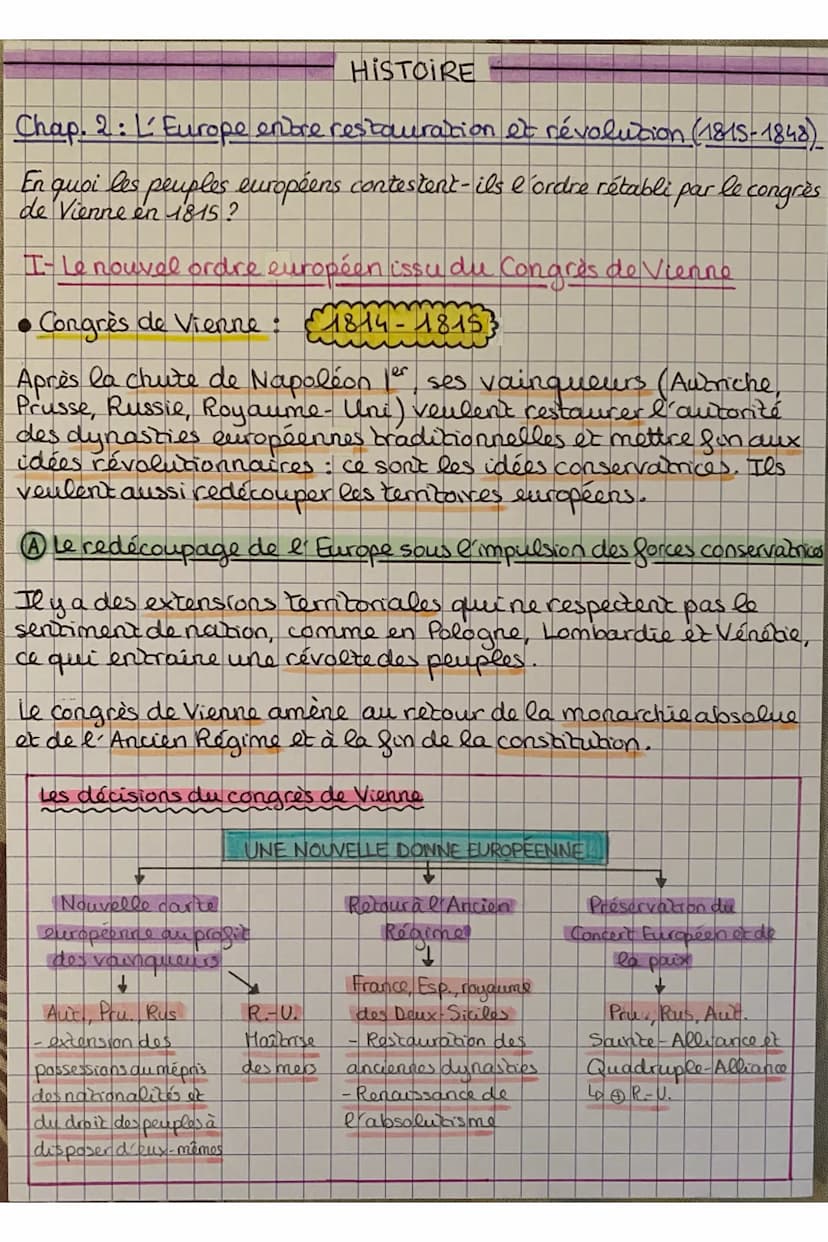 HISTOIRE
Chap. 2 : L'Europe entre restauration et révolution (1815-1848)
En quoi les peuples européens contestent-ils l'ordre rétabli par le congrès
de Vienne en 1815 ?
I- Le nouvel ordre européen issu du Congrès de Vienne
• Congrès de Vienne : 1814 - 1815
Après la chute de Napoléon Ier, ses vainqueurs (Autriche,
Prusse, Russie, Royaume-Uni) veulent restaurer l'autorité
des dynasties européennes traditionnelles et mettre fin aux
idées révolutionnaires : ce sont les idées conservatrices. Ils
veulent aussi redécouper les territoires européens.
A Le redécoupage de l'Europe sous l'impulsion des forces conservatrices
Il y a des extensions territoriales qui ne respectent pas le
sentiment de nation, comme en Pologne, Lombardie et Vénétie,
ce qui entraine une révolte des peuples.
Le congrès de Vienne amène au retour de la monarchie absolue
et de l'Ancien Régime et à la fin de la constitution.
Les décisions du congrès de Vienne
UNE NOUVELLE DONNE EUROPÉENNE
Nouvelle carte
européenne au profit
des vainqueurs
Aut, Pru, Rus
- extension des
possessions au mépris
des nationalités et
du droit des peuples à
disposer d'eux-mêmes
R.-U.
Maîtrise
des mers
Retour à l'Ancien
Régime
France, Esp., royaume
des Deux-Siciles
- Restauration des
anciennes dynasties
- Renaissance de
l'absolutisme
Préservation du
Concert Européen et de
la paix
Pru., Rus, Aut.
Sainte-Alliance et
Quadruple-Alliance
↳ ⊕ R.-U.